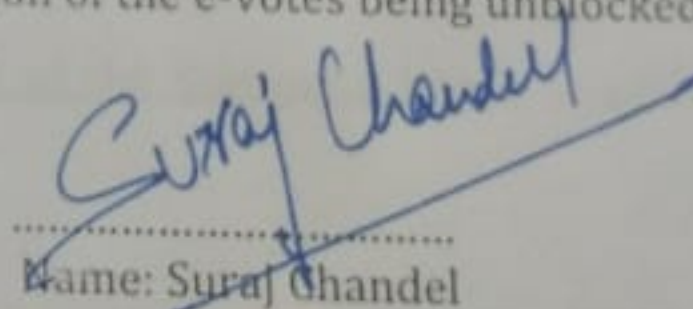 on of the e-votes being unblocked
Suraj Chandell
........................................
Name: Suraj Chandel